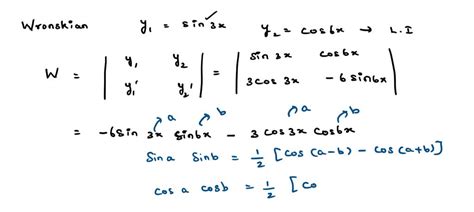 Wronskian y₁ = sin 3x ✓ y₂ = cos6x → L.I
W = | y₁ y₂ | = | sin 3x cos6x |
| y₁' y₂' | | 3cos 3x -6 sin6x |
a b a b
= -6sin 3x sin6x - 3 cos3x cos6x
Sin a Sinb = 1/2 [cos (a-b) - cos (a+b)]
cos a cosb = 1/2 [co